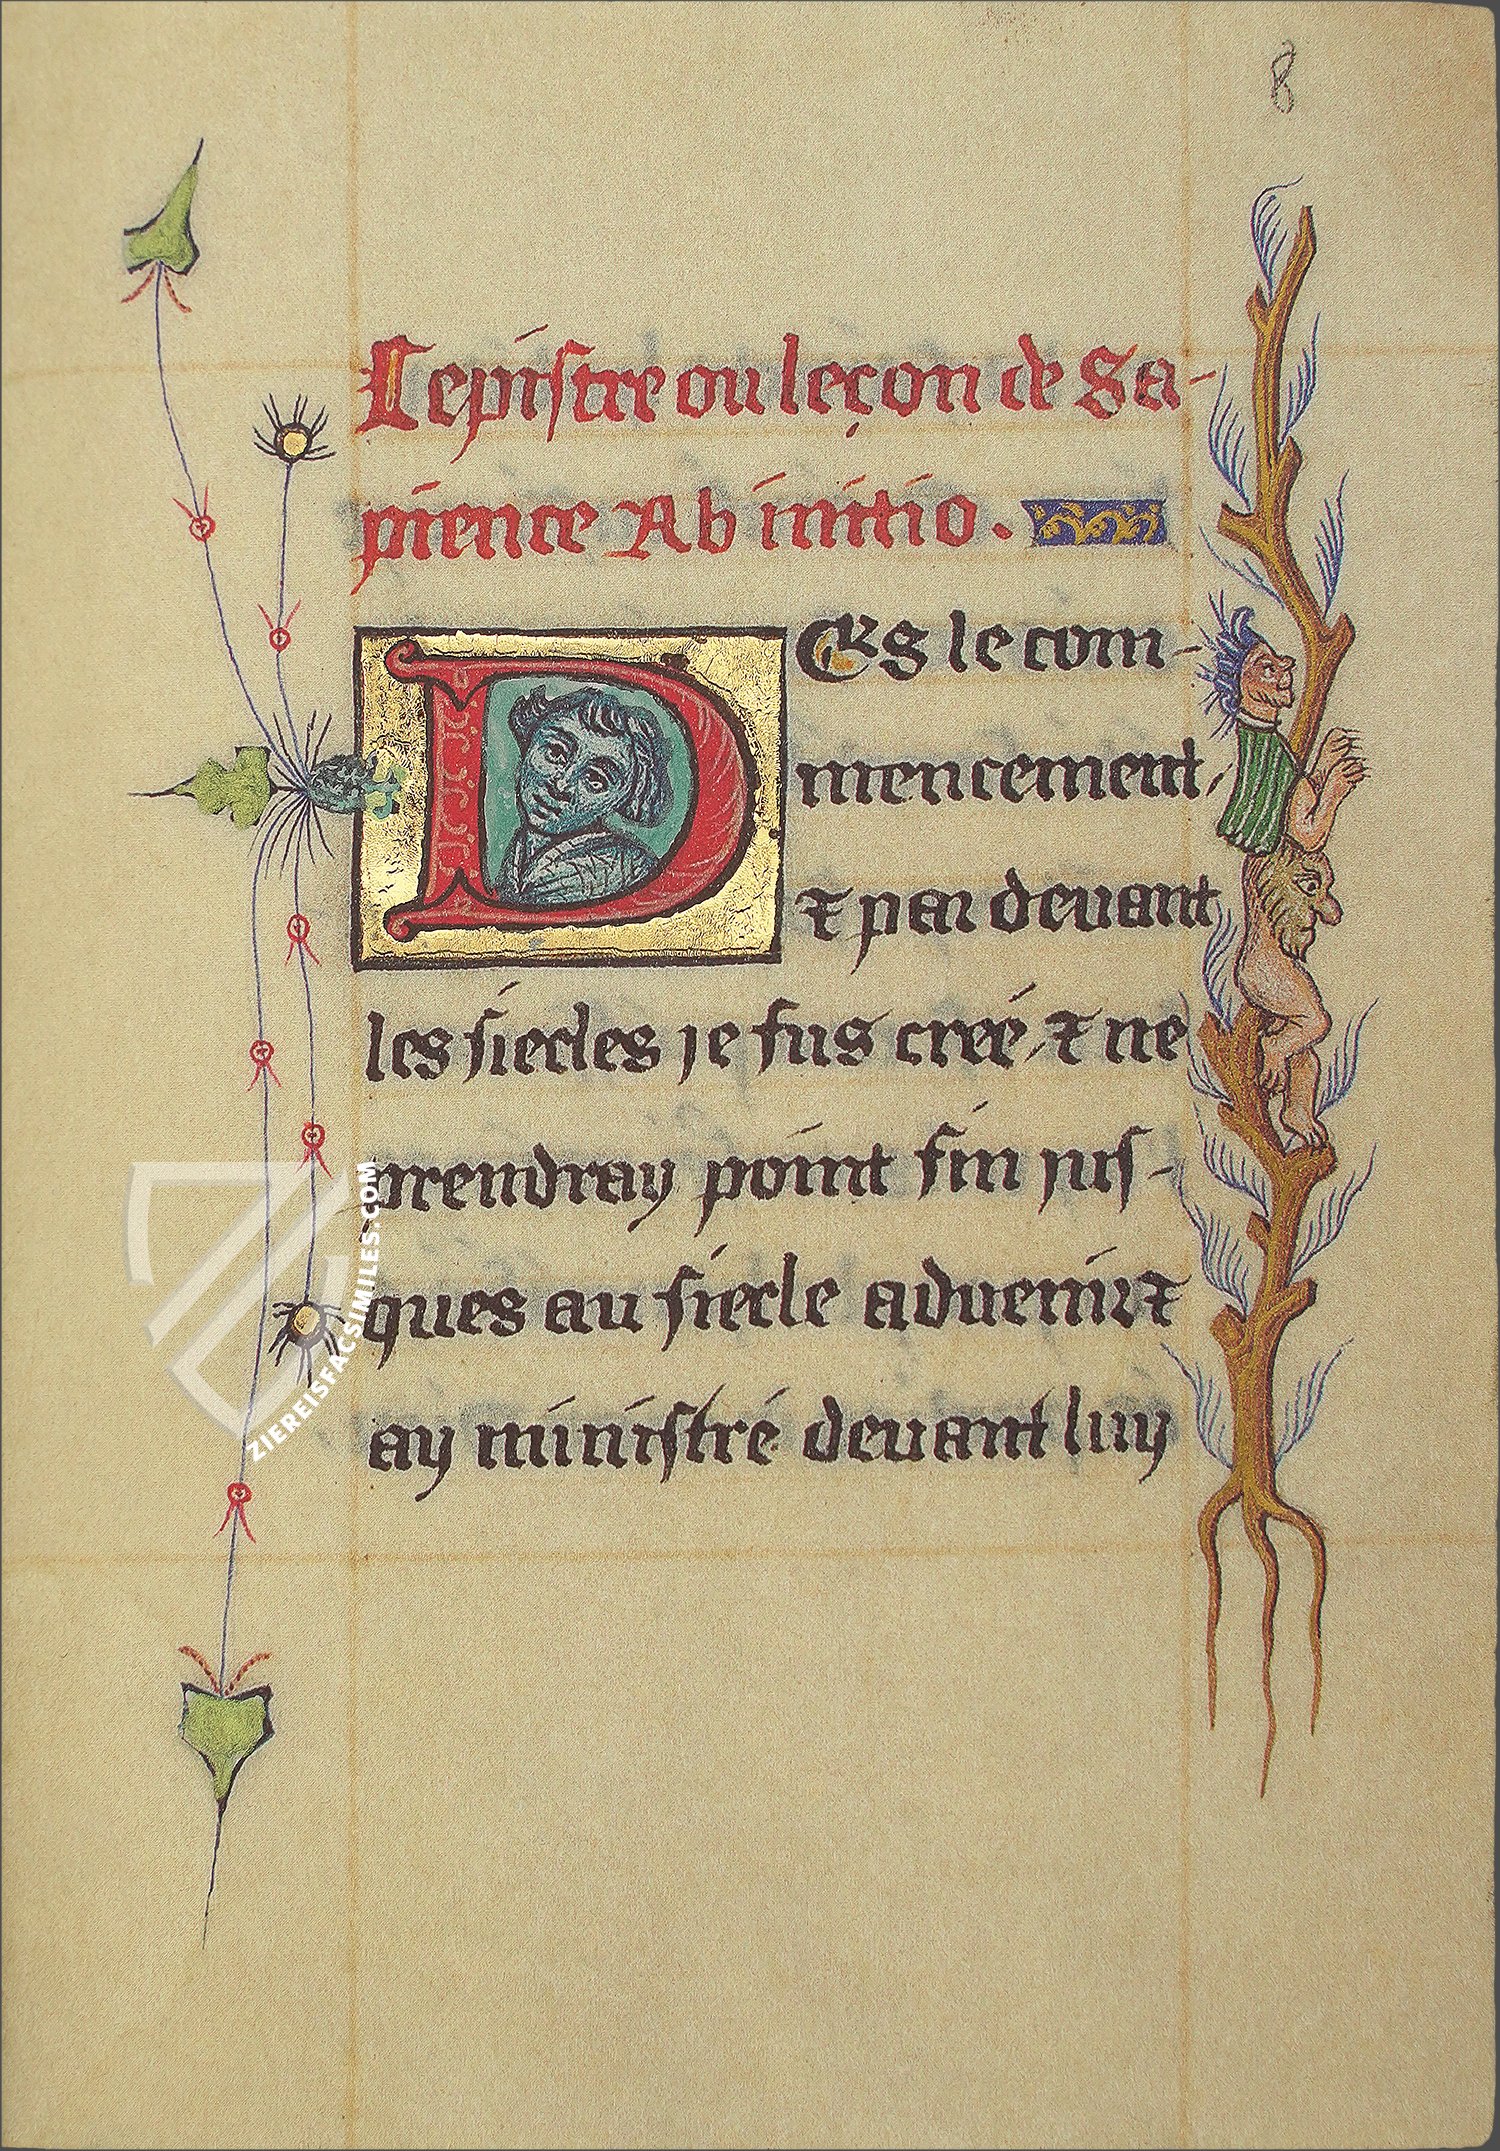 8
Lepistre ou leçon de Sa-
pience Ab initio.
DES le com-
mencement,
& par devant
les siecles je fus creé, & ne
prendray point fin jus-
ques au siecle advenir &
ay ministré devant luy
ZIEREISFACSIMILES.COM